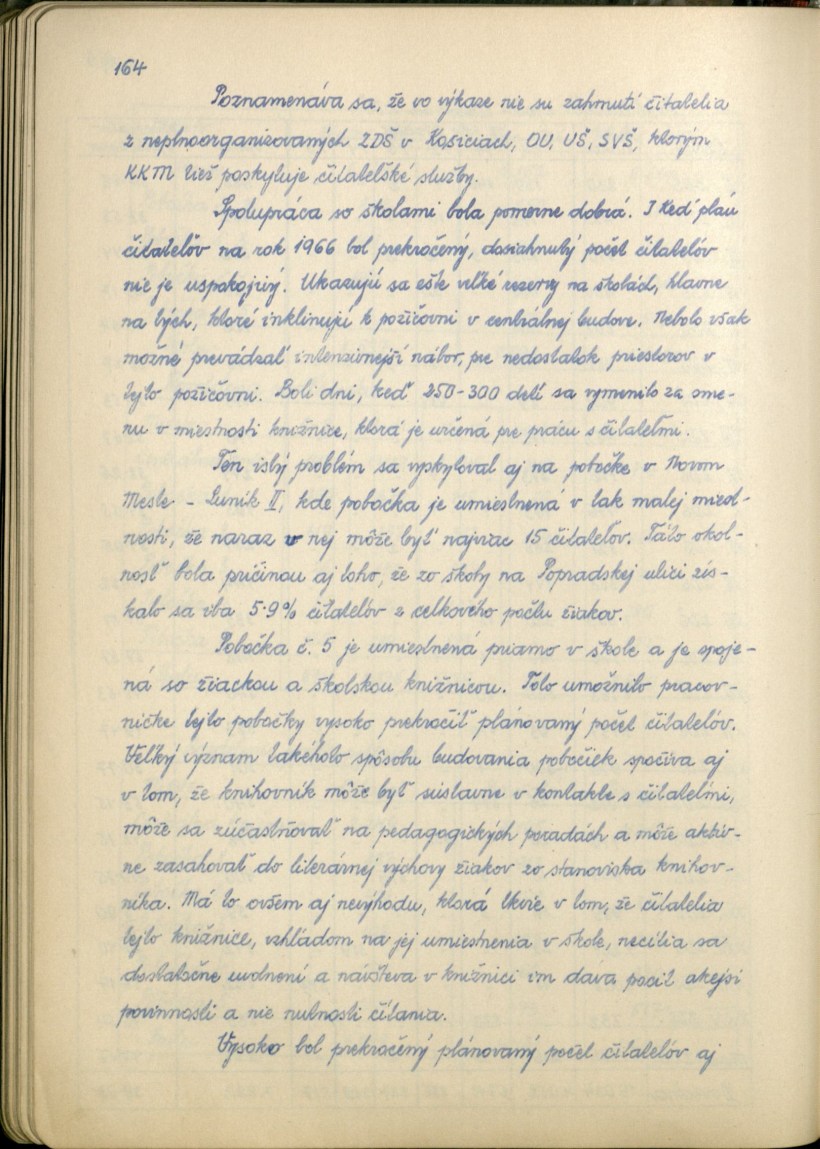 164
Poznamenáva sa, že vo výkaze nie su zahrnutí čitatelia
z neplnoorganizovaných ZDŠ v Košiciach, OU, UŠ, SVŠ, ktorým
KKM tiež poskytuje čitateľské služby.
Spolupráca so školami bola pomerne dobrá. I keď plán
čitateľov na rok 1966 bol prekročený, dosiahnutý počet čitateľov
nie je uspokojivý. Ukazujú sa ešte veľké rezervy na školách, hlavne
na tých, ktoré inklinujú k požičovni v centrálnej budove. Nebolo však
možné prevádzať intenzívnejší nábor, pre nedostatok priestorov v
tejto požičovni. Boli dni, keď 250-300 detí sa vymenilo za sme-
nu v miestnosti knižnice, ktorá je určená pre prácu s čitateľmi.
Ten istý problém sa vyskytoval aj na pobočke v Novom
Meste - Luník II, kde pobočka je umiestnená v tak malej miest-
nosti, že naraz v nej môže byť najviac 15 čitateľov. Táto okol-
nosť bola príčinou aj toho, že zo školy na Popradskej ulici zís-
kalo sa iba 5.9% čitateľov z celkového počtu žiakov.
Pobočka č. 5 je umiestnená priamo v škole a je spoje-
ná so žiackou a školskou knižnicou. Toto umožnilo pracov-
níčke tejto pobočky vysoko prekročiť plánovaný počet čitateľov.
Veľký význam takéhoto spôsobu budovania pobočiek spočíva aj
v tom, že knihovník môže byť sústavne v kontakte s čitateľmi,
môže sa zúčastňovať na pedagogických poradách a môže aktív-
ne zasahovať do literárnej výchovy žiakov zo stanoviska knihov-
níka. Má to ovšem aj nevýhodu, ktorá tkvie v tom, že čitatelia
tejto knižnice, vzhľadom na jej umiestnenia v škole, necítia sa
dostatočne uvolnení a návšteva v knižnici im dáva pocit akejsi
povinnosti a nie nutnosti čítania.
Vysoko bol prekročený plánovaný počet čitateľov aj